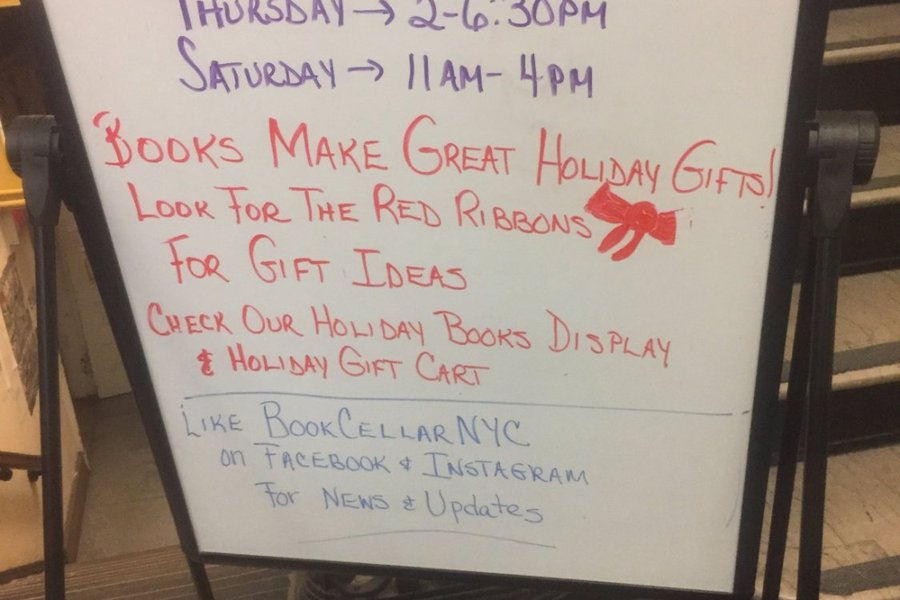 THURSDAY → 2-6:30PM
SATURDAY → 11AM - 4PM
BOOKS MAKE GREAT HOLIDAY GIFTS!
LOOK FOR THE RED RIBBONS
FOR GIFT IDEAS
CHECK OUR HOLIDAY BOOKS DISPLAY
& HOLIDAY GIFT CART
LIKE BOOKCELLARNYC
on FACEBOOK & INSTAGRAM
FOR NEWS & Updates